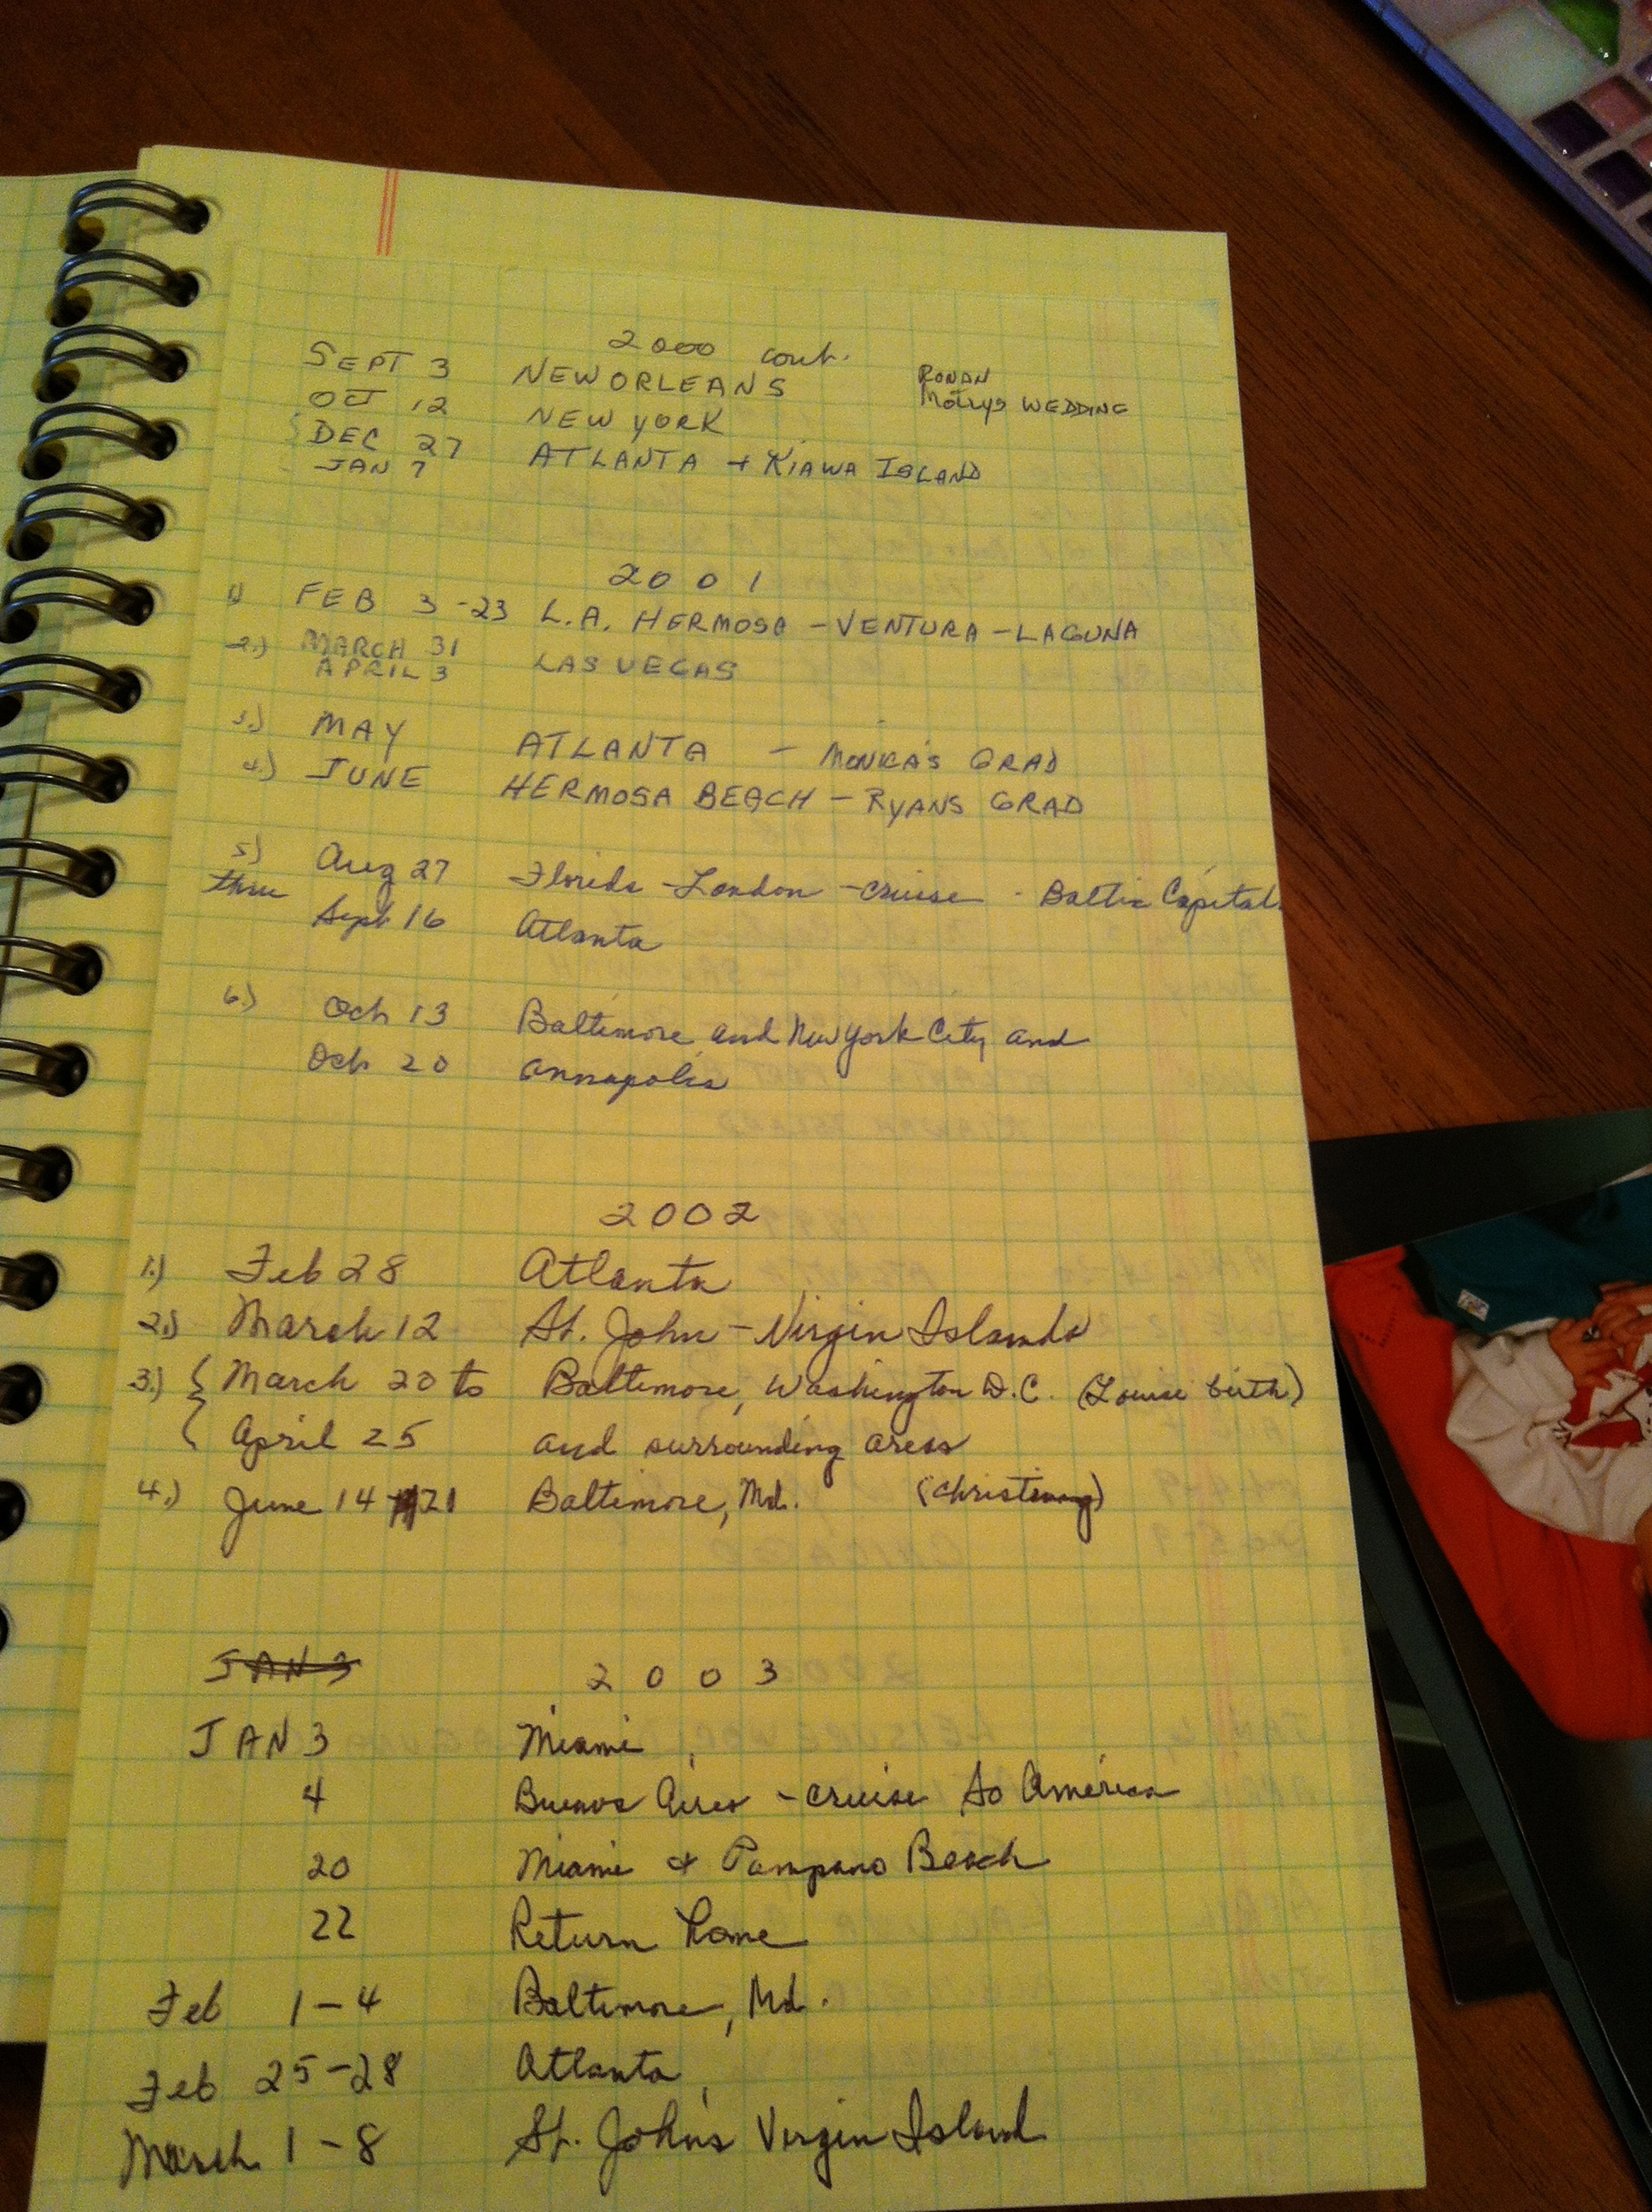 2000 cont.
SEPT 3 NEW ORLEANS RONAN
OCT 12 NEW YORK WEDDING
DEC 27 ATLANTA + KIAWA ISLAND
JAN 7
2001
1) FEB 3-23 L.A. HERMOSA - VENTURA - LAGUNA
2.) MARCH 31 LAS VEGAS
APRIL 3
3.) MAY ATLANTA - MONICA'S GRAD
4.) JUNE HERMOSA BEACH - RYANS GRAD
5) Aug 27 Florida - London - cruise - Baltic Capitals
thru Sept 16 Atlanta
6.) Oct 13 Baltimore and New York City and
Oct 20 Annapolis
2002
1.) Feb 28 Atlanta
2.) March 12 St. John - Virgin Islands
3.) March 20 to Baltimore, Washington D.C. (Louise birth)
April 25 and surrounding areas
4.) June 14-21 Baltimore, Md. (Christening)
JAN 3 2003
JAN 3 Miami
4 Buenos Aires - cruise So America
20 Miami & Pompano Beach
22 Return home
Feb 1-4 Baltimore, Md.
Feb 25-28 Atlanta
March 1-8 St. John's Virgin Island